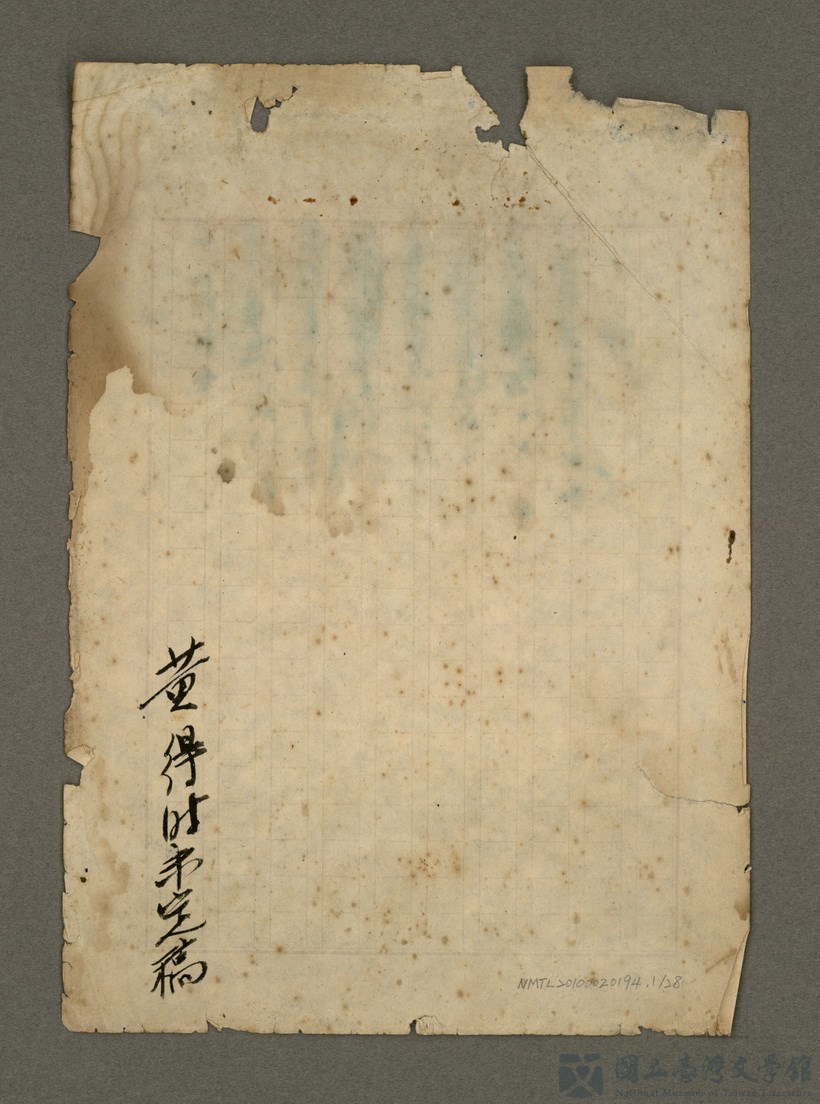 黃得时未完稿
NMTL20100020194.1/28
國立臺灣文學館
National Museum of Taiwan Literature